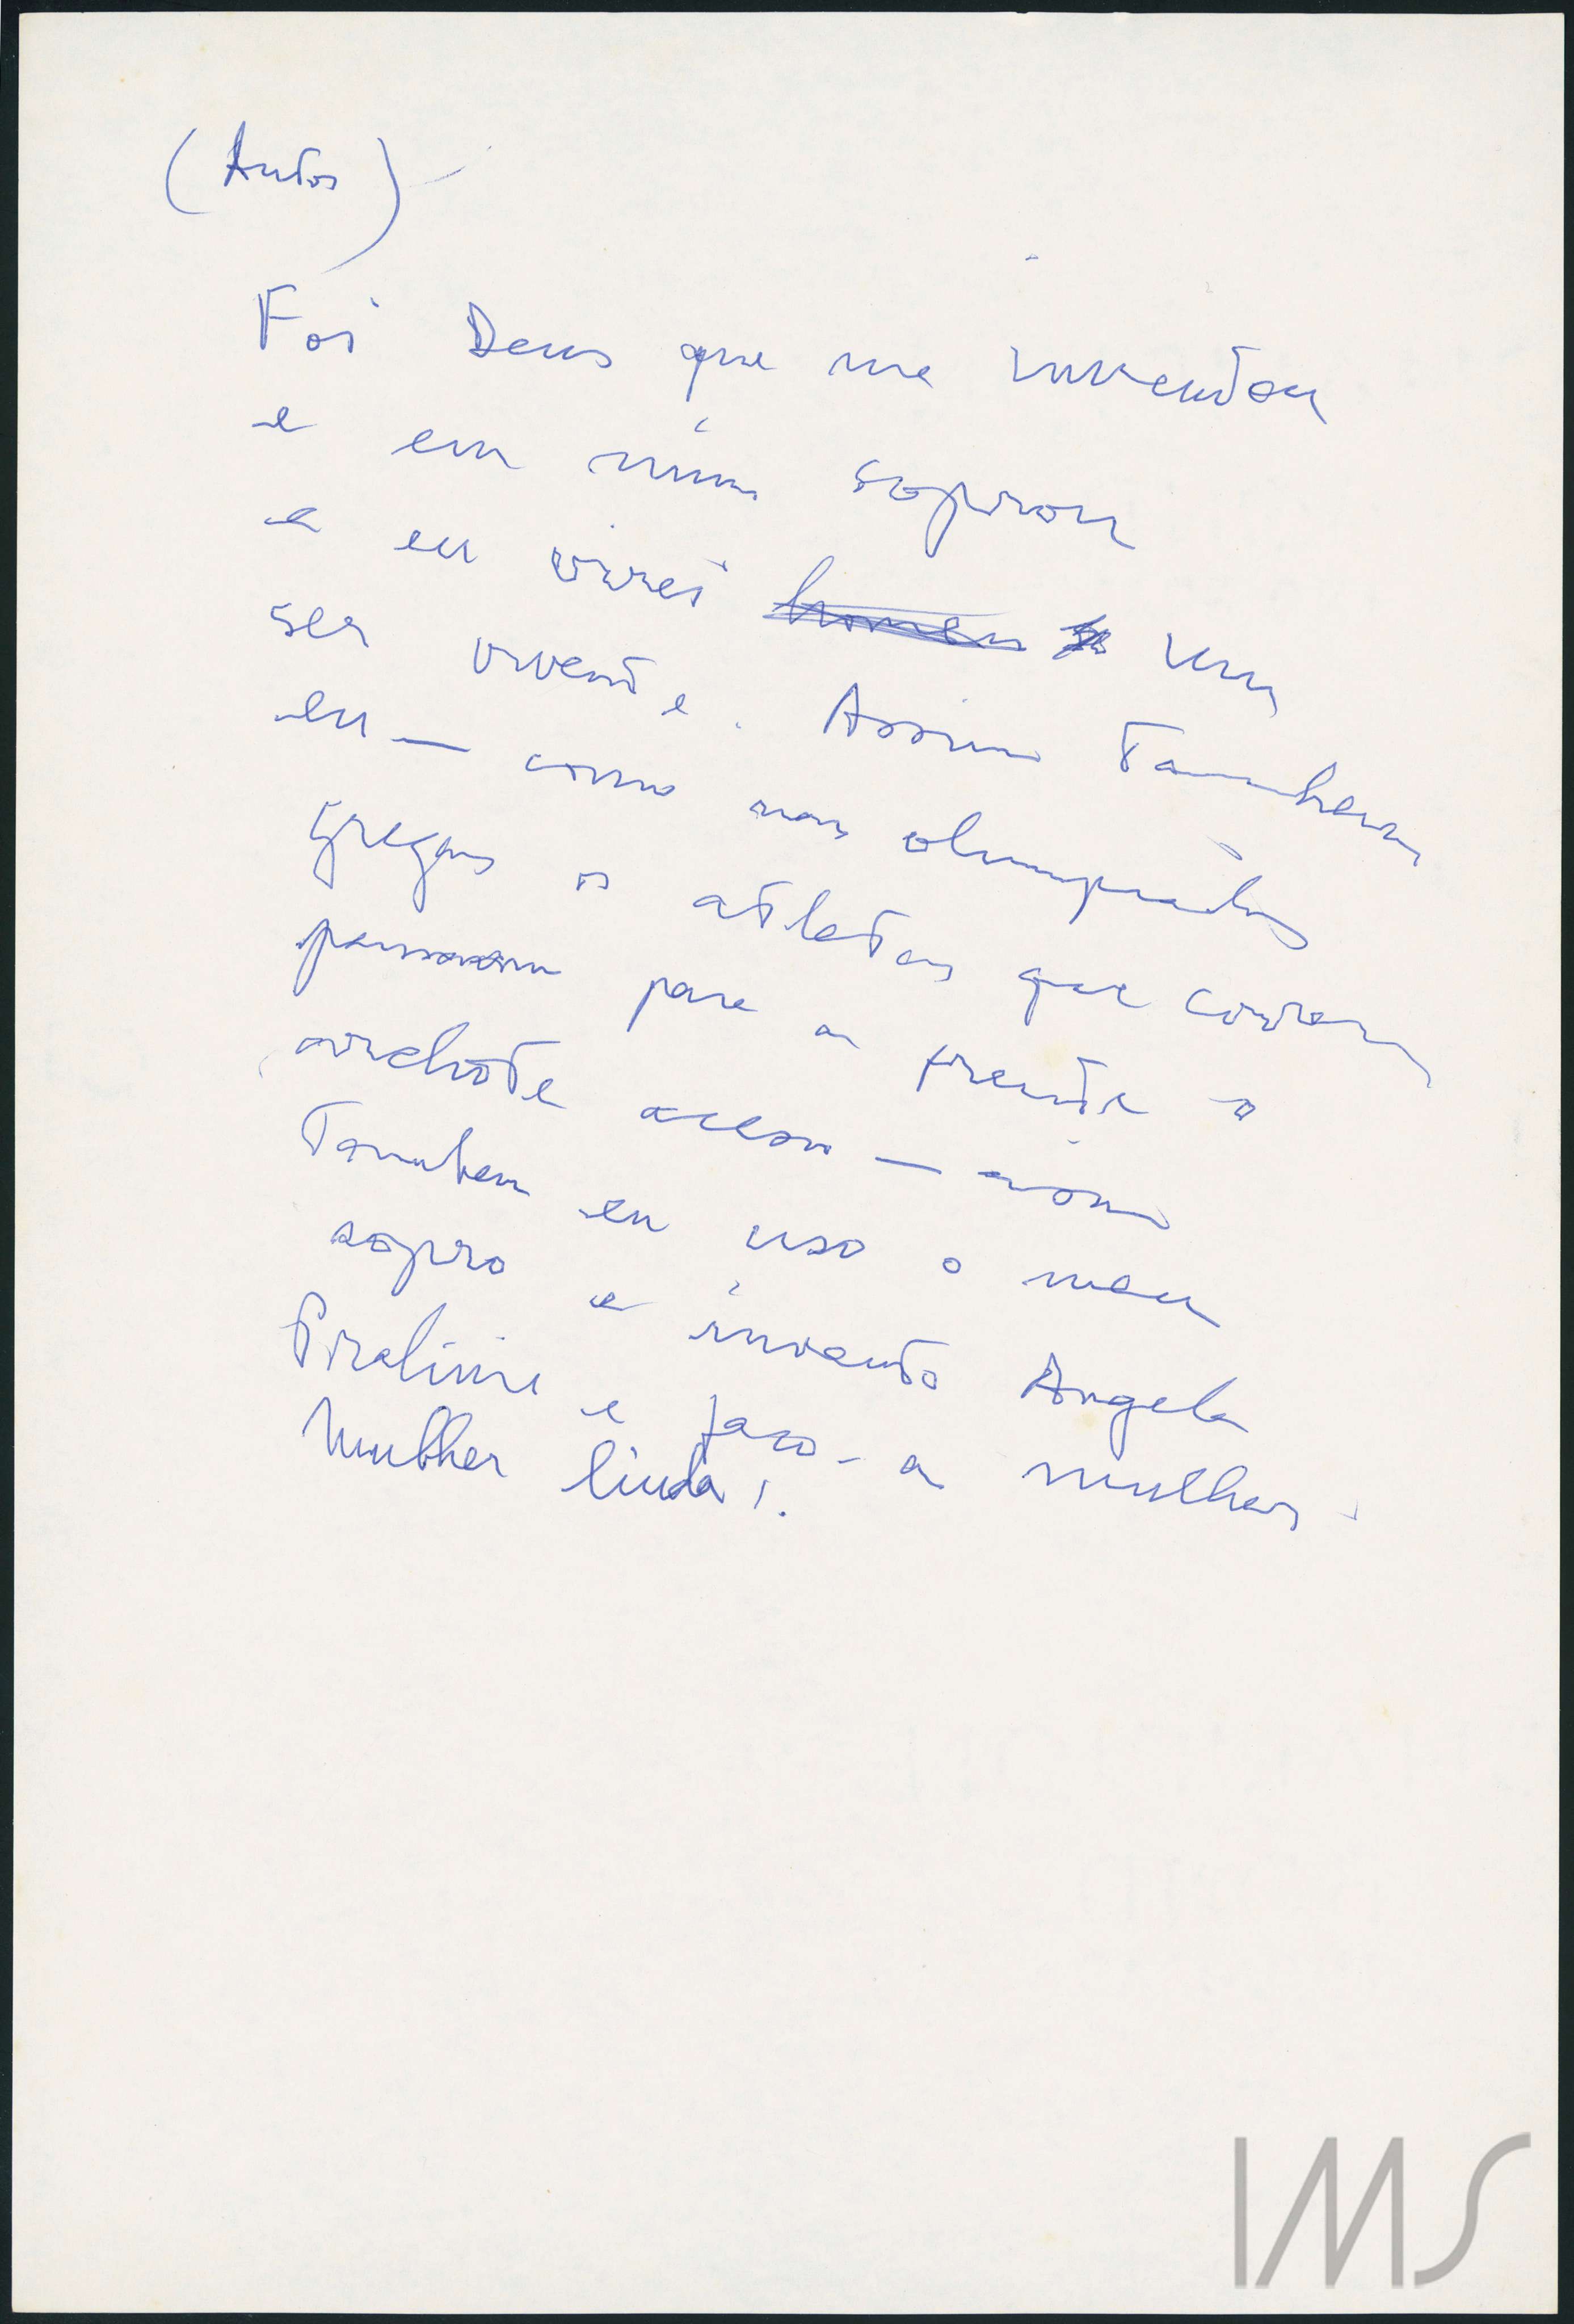 (Autor)
Foi Deus que me inventou
e em mim soprou
e eu virei homem um
ser vivente. Assim tambem
eu — como nas olimpíadas
gregas os atletas que correm
passavam para a frente o
archote aceso — assim
tambem eu uso o meu
sopro e invento Angela
Pralini e faço-a mulher.
Mulher linda!.
IMS